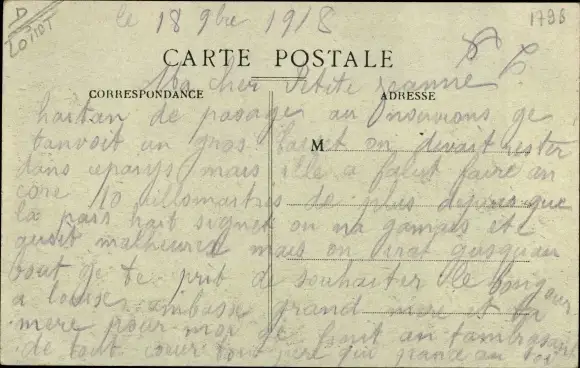 D
LOTIOT
1798
le 18 9bre 1918
CARTE POSTALE
Ma cher Petite jeanne
CORRESPONDANCE
ADRESSE
M
haitan de pasage au ge
tanvoit un gros baiset on devait rester
dans cepaiys mais ille a falut faire an
core 10 killomaitres de plus depuis que
la pais hait signet on na gamais ete
ausit malheureu mais on irat gusquau
bout ge te prit de souhaiter le bongour
a louise ambasse grand mere et ta
mere pour moi ge finit an tambrasant
de tout coeur ton pere qui panse an toi